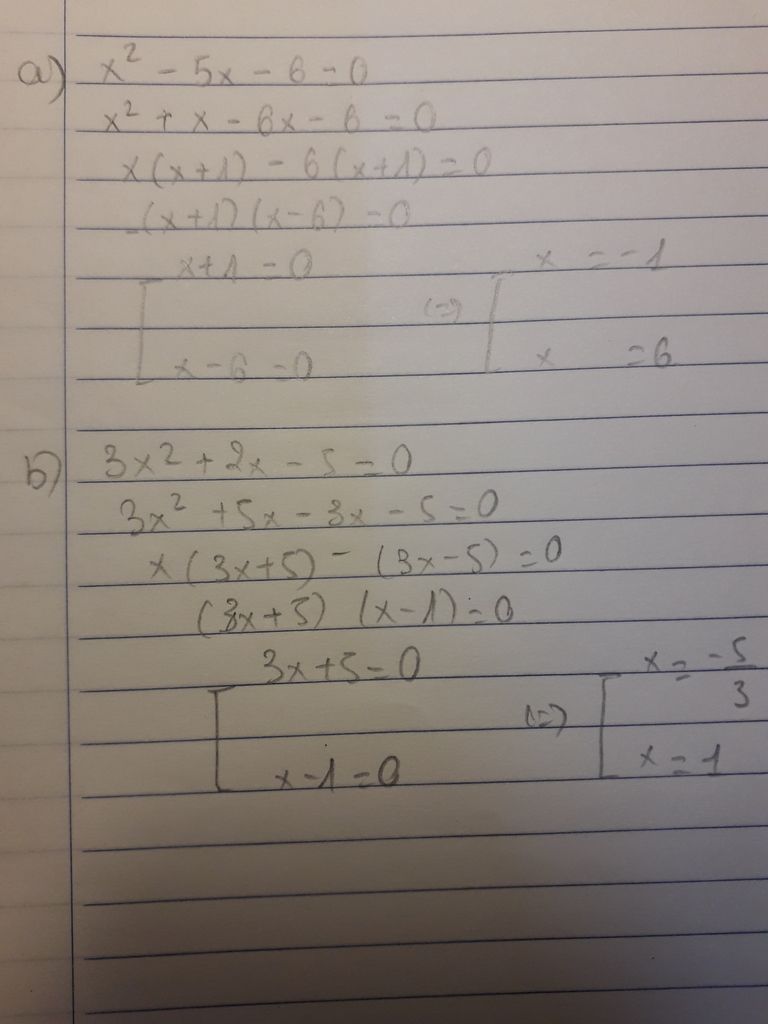 a) x² - 5x - 6 = 0
x² + x - 6x - 6 = 0
x(x+1) - 6(x+1) = 0
(x+1)(x-6) = 0
[ x+1 = 0 (=) [ x = -1
x-6 = 0 x = 6
b) 3x² + 2x - 5 = 0
3x² + 5x - 3x - 5 = 0
x(3x+5) - (3x-5) = 0
(3x+5) (x-1) = 0
[ 3x+5 = 0 (=) [ x = -5/3
x-1 = 0 x = 1